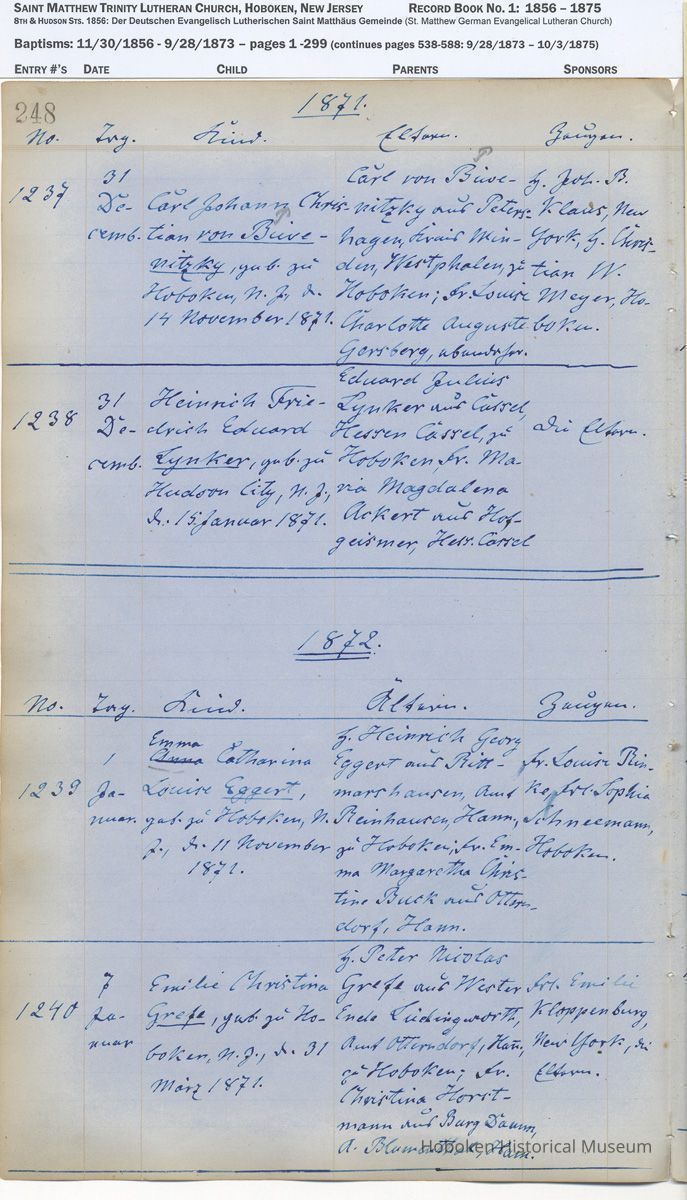 SAINT MATTHEW TRINITY LUTHERAN CHURCH, HOBOKEN, NEW JERSEY RECORD BOOK NO. 1: 1856 – 1875
8TH & HUDSON STS. 1856: Der Deutschen Evangelisch Lutherischen Saint Matthäus Gemeinde (St. Matthew German Evangelical Lutheran Church)
Baptisms: 11/30/1856 - 9/28/1873 – pages 1 -299 (continues pages 538-588: 9/28/1873 – 10/3/1875)
ENTRY #'S DATE CHILD PARENTS SPONSORS
248
1871.
No. Tag. Kind. Eltern. Zeugen.
1237
31
De-
cemb.
Carl Johann Chris-
tian von Buve-
nitzky, geb. zu
Hoboken, N. J., d.
14 November 1871.
Carl von Buve-
nitzky aus Peters-
hagen, Krais Min-
den, Westphalen, zu
Hoboken; fr. Louise
Charlotte Auguste
Gersberg, ebendaher.
H. Joh. B.
Klaus, New
York, H. Chris-
tian W.
Meyer, Ho-
boken.
1238
31
De-
cemb.
Heinrich Frie-
drich Eduard
Lynker, geb. zu
Hudson City, N. J.,
d. 15 Januar 1871.
Eduard Julius
Lynker aus Cassel,
Hessen Cassel, zu
Hoboken, fr. Ma-
ria Magdalena
Ackert aus Hof-
geismer, Hess. Cassel
die Eltern.
1872.
No. Tag. Kind. Ältern. Zeugen.
1239
1
Ja-
nuar.
Emma
Anna Catharina
Louise Eggert,
geb. zu Hoboken, N.
J., d. 11 November
1871.
H. Heinrich Georg
Eggert aus Ritt-
marshausen, Amt
Reinhausen, Hann.,
zu Hoboken; fr. Em-
ma Margaretha Chris-
tine Buck aus Ottern-
dorf, Hann.
fr. Louise Rin-
ke, frl. Sophia
Schneemann,
Hoboken.
1240
7
Ja-
nuar
Emilie Christina
Grefe, geb. zu Ho-
boken, N. J., d. 31
März 1871.
H. Peter Nicolas
Grefe aus Wester
Ende Lüdingworth,
Amt Otterndorf, Han.,
zu Hoboken; fr.
Christina Horst-
mann aus Burg Damm,
A. Blumenthal, Han.
frl. Emilie
Kloppenburg,
New York, die
Eltern.
Hoboken Historical Museum